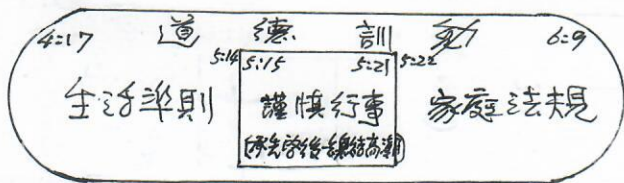 4:17 道德訓勉 6:9
5:14 5:15 5:21 5:22
生活準則 謹慎行事 家庭法規
(承先啓後-總結高潮)